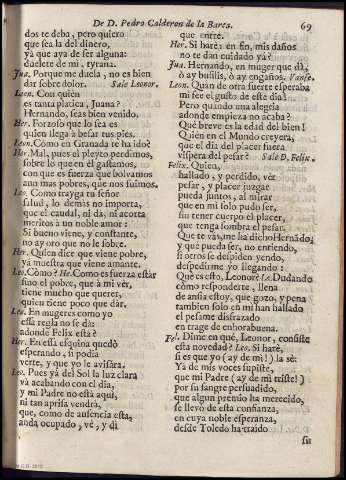 De D. Pedro Calderon de la Barca. 69
dos te deba, pero quiero
que sea la del dinero,
yà que aya de ser alguna:
duelete de mi, tyrana.
Jua. Porque me duela, no es bien
dar sobre dolor. Sale Leonor.
Leon. Con quien
es tanta platica, Juana?
Hernando, seas bien venido.
Her. Forzoso que lo sea es
quien llega à besar tus pies.
Leon. Como en Granada te ha ido?
Her. Mal, pues el pleyto perdimos,
sobre lo que en èl gastamos,
con que es fuerza que bolvamos
aun mas pobres, que nos fuimos.
Leo. Como trayga tu señor
salud, lo demàs no importa,
que el caudal, ni dà, ni acorta
meritos à un noble amor:
Si bueno viene, y constante,
no ay oro que no le sobre.
Her. Quien dice que viene pobre,
yà muestra que viene amante.
Leo. Còmo? He. Como es fuerza estàr
fino el pobre, que à mi vèr,
tiene mucho que querer,
quien tiene poco que dar.
Leo. En mugeres como yo
essa regla no se dà:
adonde Felix està?
Her. En essa esquina quedò
esperando, si podia
verte, y que yo le avisàra.
Leo. Pues yà del Sol la luz clara
và acabando con el dia,
y mi Padre no està aqui,
ni tan aprisa vendrà,
que, como de ausencia està,
anda ocupado, vè, y di
que entre.
Her. Si harè: en fin, mis daños
no te dan cuidado yà?
Jua. Hernando, en muger que dà,
ò ay busilis, ò ay engaños. Vanse.
Leon. Quàn de otra suerte esperaba
mi fee el gusto de este dia!
Pero quando una alegria
adonde empieza no acaba?
Què breve es la edad del bien!
Quièn en el Mundo creyera,
que el dia del placer fuera
vispera del pesar? Sale D. Felix.
Felix. Quien,
hallado, y perdido, vèr
pesar, y placer juzgàre
pueda juntos, al mirar
que en mi solo pudo ser,
sin tener cuerpo el placer,
que tenga sombra el pesar.
Que te vàs, me ha dicho Hernãdo;
y què pueda ser, no entiendo,
si otros se despiden yendo,
despedirme yo llegando:
Què es esto, Leonor? Le. Dudando
còmo responderte, llena
de ansia estoy, que gozo, y pena
tambien solo en mi han hallado
el pesame disfrazado
en trage de enhorabuena.
Fel. Dime en què, Leonor, consiste
esta novedad? Leo. Si harè,
si es que yo (ay de mi!) la sè:
Yà de mis voces supiste,
que mi Padre (ay de mi triste!)
por su sangre persuadido,
que algun premio ha merecido,
se llevò de esta confianza,
en cuya noble esperanza,
desde Toledo ha traido
su